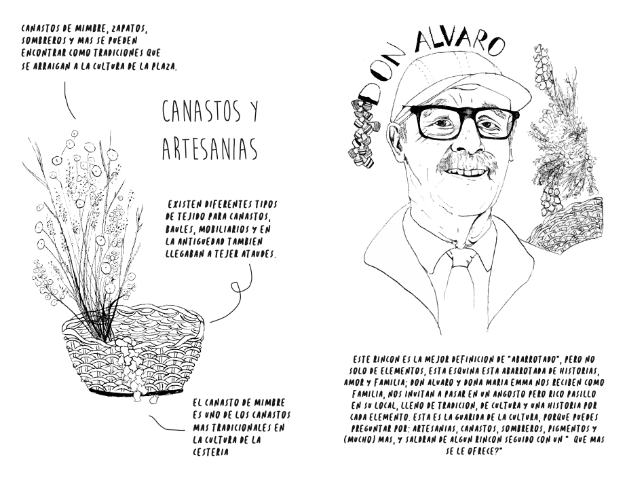 CANASTOS DE MIMBRE, ZAPATOS,
SOMBREROS Y MAS SE PUEDEN
ENCONTRAR COMO TRADICIONES QUE
SE ARRAIGAN A LA CULTURA DE LA PLAZA.
CANASTOS Y
ARTESANIAS
EXISTEN DIFERENTES TIPOS
DE TEJIDO PARA CANASTOS,
BAULES, MOBILIARIOS Y EN
LA ANTIGUEDAD TAMBIEN
LLEGABAN A TEJER ATAUDES.
EL CANASTO DE MIMBRE
ES UNO DE LOS CANASTOS
MAS TRADICIONALES EN
LA CULTURA DE LA
CESTERIA
DON ALVARO
ESTE RINCON ES LA MEJOR DEFINICION DE "ABARROTADO", PERO NO
SOLO DE ELEMENTOS, ESTA ESQUINA ESTA ABARROTADA DE HISTORIAS,
AMOR Y FAMILIA; DON ALVARO Y DONA MARIA EMMA NOS RECIBEN COMO
FAMILIA, NOS INVITAN A PASAR EN UN ANGOSTO PERO RICO PASILLO
EN SU LOCAL, LLENO DE TRADICION, DE CULTURA Y UNA HISTORIA POR
CADA ELEMENTO. ESTA ES LA GUARIDA DE LA CULTURA, PORQUE PUEDES
PREGUNTAR POR: ARTESANIAS, CANASTOS, SOMBREROS, PIGMENTOS Y
(MUCHO) MAS, Y SALDRAN DE ALGUN RINCON SEGUIDO CON UN " QUE MAS
SE LE OFRECE?"